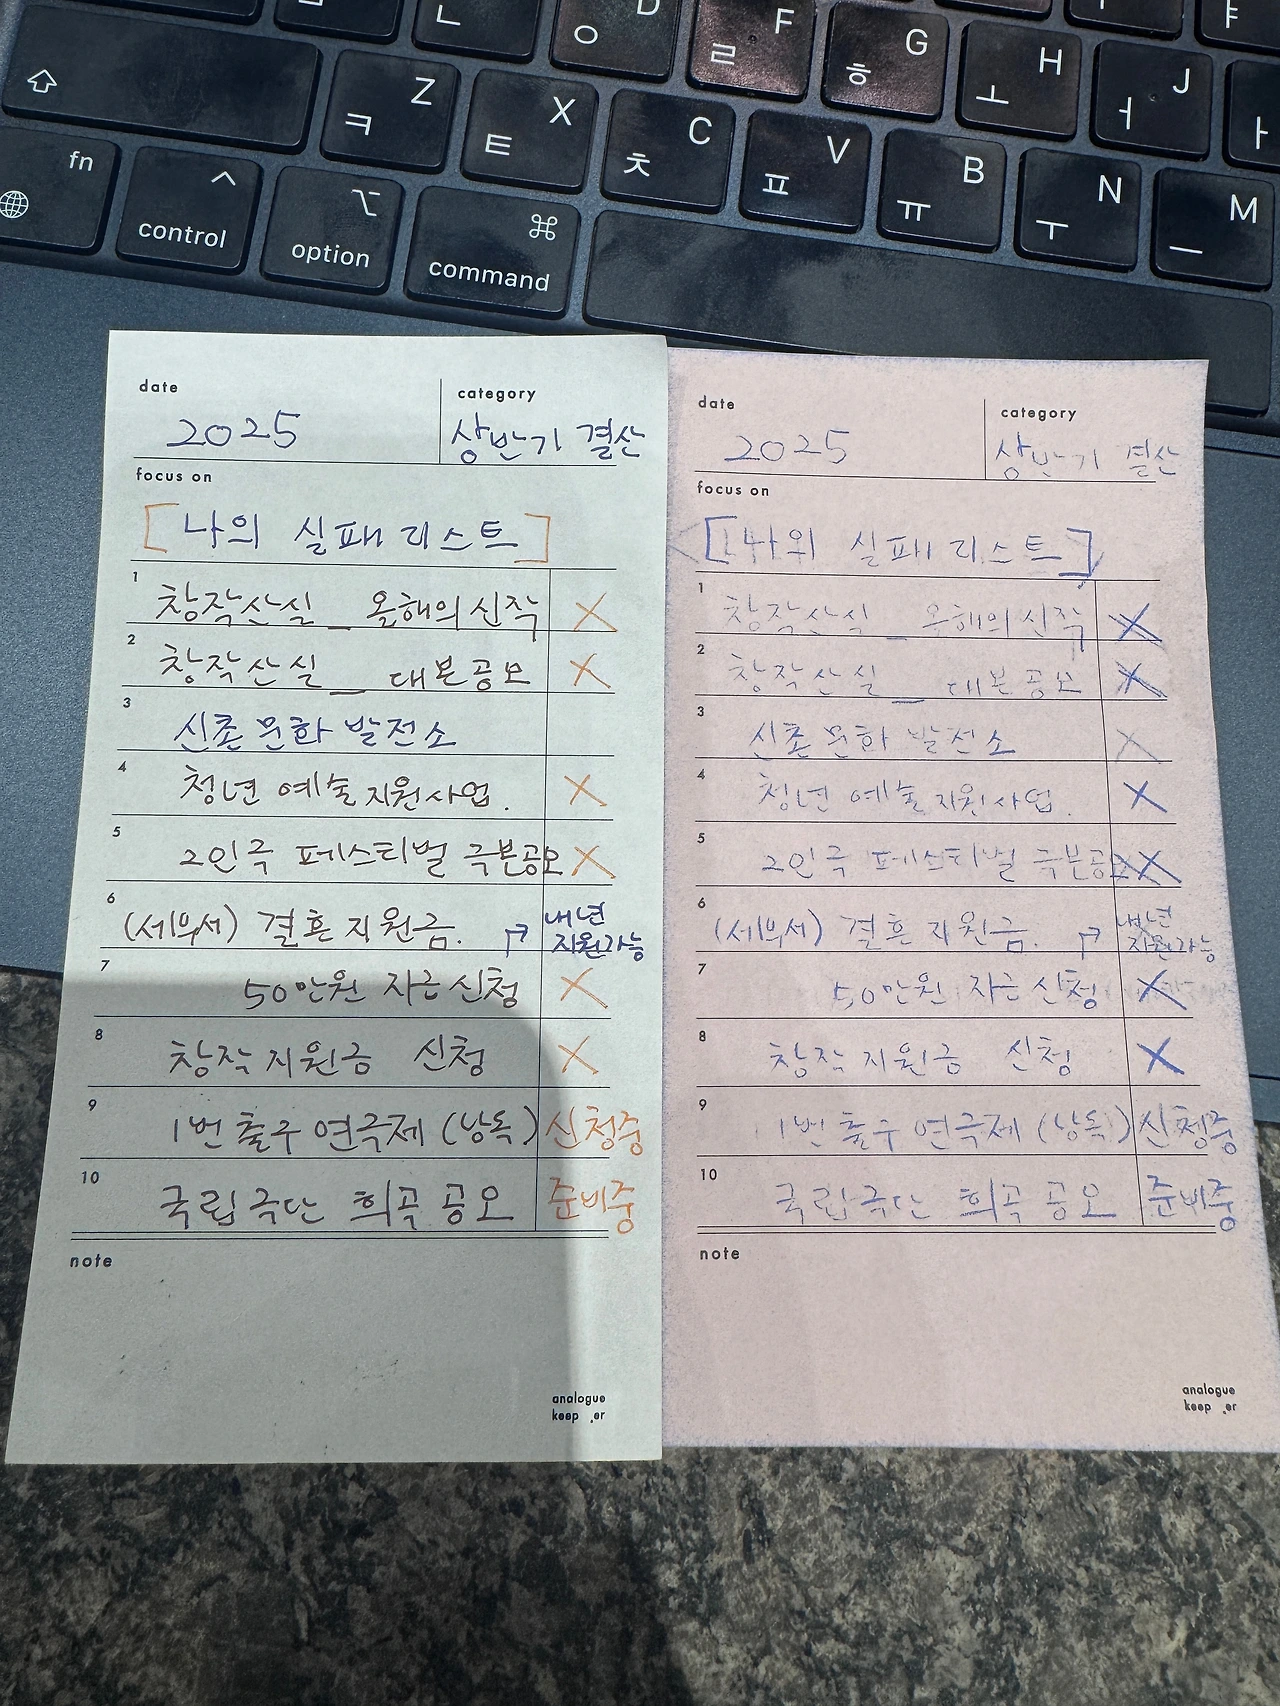 D
F
G
H
J
ㄴ
ㅇ
ㄹ
ㅎ
ㅗ
ㅓ
ㅏ
Z
X
C
V
B
N
M
ㅋ
ㅌ
ㅊ
ㅍ
ㅠ
ㅜ
ㅡ
fn
control
option
command
date
category
2025
상반기 결산
focus on
[나의 실패 리스트]
1 창작산실_ 올해의신작 X
2 창작산실_ 대본공모 X
3 신촌문화발전소
4 청년 예술지원사업. X
5 2인극 페스티벌 극본공모 X
6 (세의서) 결혼지원금. 내년 지원가능
7 50만원 자금신청 X
8 창작지원금 신청 X
9 1번출구연극제 (낭독) 신청중
10 국립극단 희곡공모 준비중
note
analogue
keep_er
date
category
2025
상반기 결산
focus on
[나의 실패 리스트]
1 창작산실_ 올해의신작 X
2 창작산실_ 대본공모 X
3 신촌문화발전소 X
4 청년 예술지원사업. X
5 2인극 페스티벌 극본공모 X
6 (세의서) 결혼지원금. 내년 지원가능
7 50만원 자금신청 X
8 창작지원금 신청 X
9 1번출구연극제 (낭독) 신청중
10 국립극단 희곡공모 준비중
note
analogue
keep_er